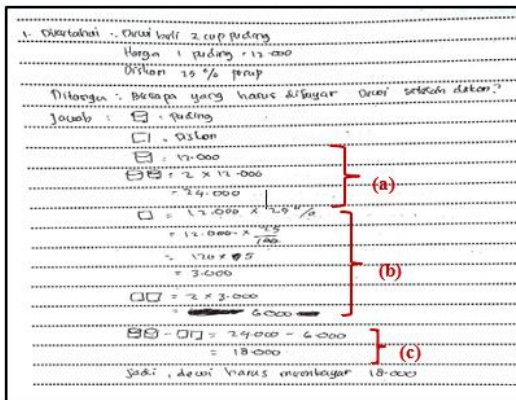 1. Diketahui : Dewi beli 2 cup puding
Harga 1 puding = 12.000
Diskon 25 % percup
Ditanya : Berapa yang harus dibayar Dewi setelah diskon?
Jawab : = puding
= Diskon
= 12.000
= 2 x 12.000
= 24.000
(a)
= 12.000 x 25 %
= 12.000 x 25/100
= 120 x 25
= 3.000
= 2 x 3.000
= 6000
(b)
- = 24.000 - 6.000
= 18.000
(c)
Jadi, dewi harus membayar 18.000